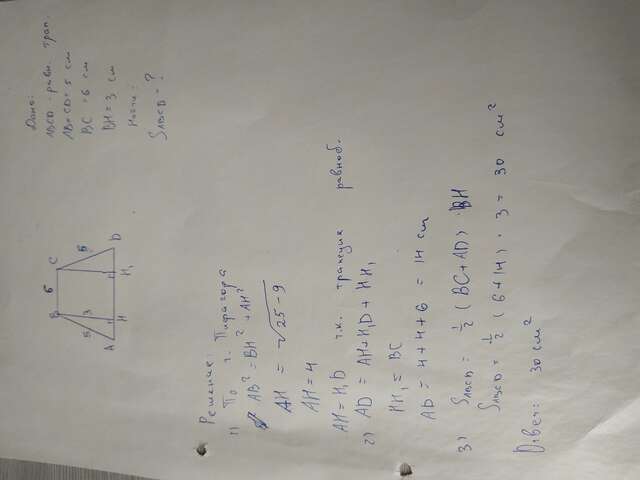 Дано:
ABCD - равн. трап.
AB = CD = 5 см
BC = 6 см
BH = 3 см
Найти:
SABCD = ?
B 6 C
5 3 5
A H H₁ D
Решение:
1) По т. Пифагора
AB² = BH² + AH²
AH = √25-9
AH = 4
AH = H₁D т.к. трапеция равноб.
2) AD = AH + H₁D + HH₁
HH₁ = BC
AD = 4 + 4 + 6 = 14 см
3) SABCD = 1/2 (BC + AD) · BH
SABCD = 1/2 (6 + 14) · 3 = 30 см²
Ответ: 30 см²